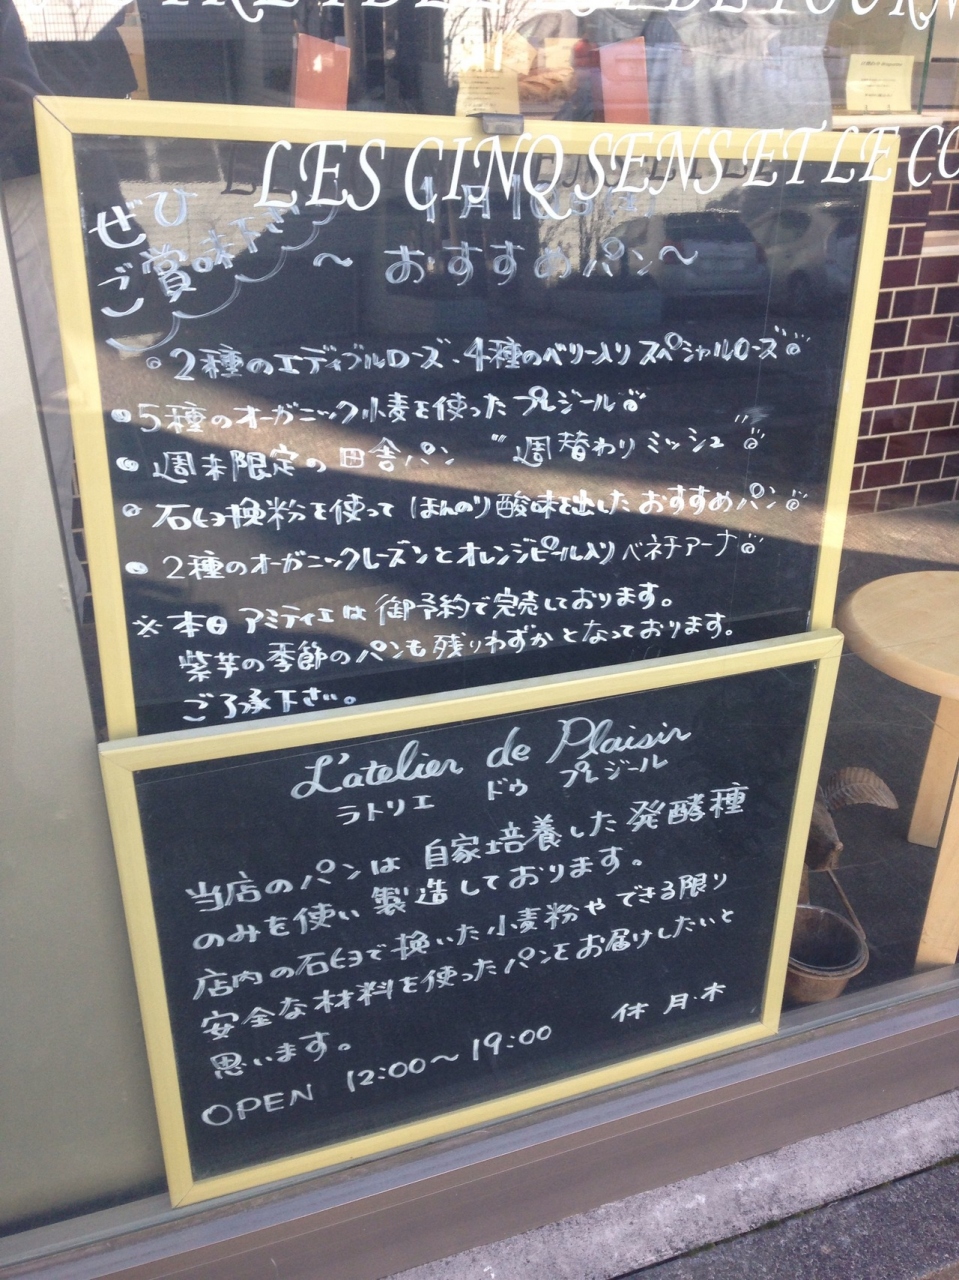 LES CINQ SENS ET LE CO
ぜひ
ご賞味下さい
～おすすめパン～
2種のエディブルローズ、4種のベリー入り スペシャルローズ
5種のオーガニック小麦を使った プレジール
週末限定の 田舎パン "週替わりミッシュ"
石臼挽粉を使って ほんのり酸味を出した おすすめパン
2種のオーガニックレーズンとオレンジピール入り ベネチアーナ
※ 本日 アミティエは 御予約で完売しております。
紫芋の季節のパンも残りわずかとなっております。
ご了承下さい。
L'atelier de Plaisir
ラトリエ ドゥ プレジール
当店のパンは 自家培養した 発酵種
のみを使い 製造しております。
店内の石臼で挽いた小麦粉や できる限り
安全な材料を使ったパンをお届けしたいと
思います。
休 月・木
OPEN 12:00～19:00